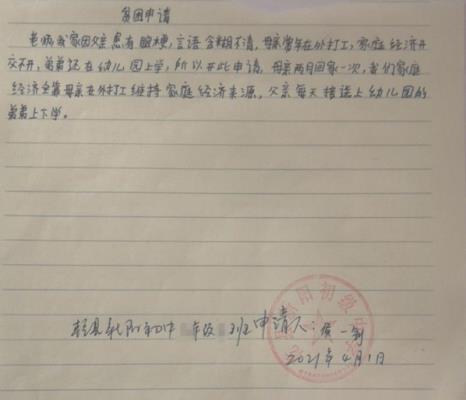 贫困申请
老师我家因父亲患有脑梗，言语含糊不清，母亲常年在外打工，家庭经济开
支不开，弟弟还在幼儿园上学，所以开此申请，母亲两月回家一次，我们家庭
经济全靠母亲在外打工维持家庭经济来源，父亲每天接送上幼儿园的
弟弟上下学。
阳初级中
县 阳初中 年级 班申请人：侯一
2021年4月1日